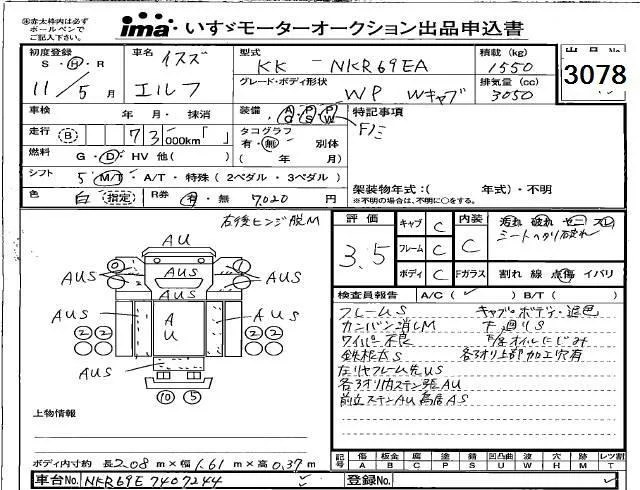 ※赤太枠内は必ずボールペンでご記入下さい
ima いすゞモーターオークション出品申込書
初度登録 車名 型式 積載 (kg) 出品No.
S・H・R イスズ KK - NKR69EA 1550 3078
11/5月 エルフ グレード・ボディ形状 排気量 (cc)
WP Wキャブ 3050
車検 年・月・抹消 装備 AC PS PW 特記事項
走行 B 73 000km「 」 タコグラフ
有・無 別体 (年 月)
燃料 G・D・HV 他( )
シフト 5 M/T・A/T・特殊(2ペダル・3ペダル) 架装物年式:( 年式)・不明
色 白 (指定) R券 有・無 7020 円 ※不明の場合は、不明に○をする。
右後ヒンジ脱M
評価 キャブ C 内装 汚れ 破れ
3.5 フレーム C C シートヘタリ破れ
ボディ C Fガラス 割れ 線 点傷 イバリ
検査員報告 A/C( ✓ ) B/T( )
AU
AUS AUS AUS
AUS AU AUS
2 2 2 2
AUS
10 5
フレームS キャブ・ボデー・退色
カンバン消しM 下廻りS
ワイパー不良 F/ガオイルにじみ
鉄板太S 各アオリ上部加工穴有
左リヤフレーム先US
各アオリ内ステン張AU
前立ステンAU 鳥居AS
上物情報
ボディ内寸約 長2.08 m×幅1.61 m×高0.37m
記号 傷 板金 腐 塗 錆 凹凸曲 波 穴 跡 レツ割
A B C P S U W H M T
車台No. NKR69E7407244 登録No.